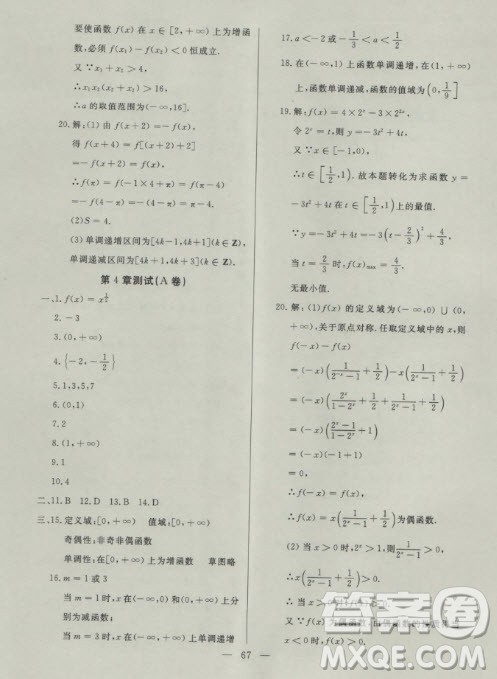 要使函数 f(x) 在 x∈[2,+∞) 上为增函
数,必须 f(x₁)-f(x₂)<0 恒成立.
又∵x₁+x₂>4,
∴x₁x₂(x₁+x₂)>16,
∴a 的取值范围为(-∞,16].
20.解:(1)由 f(x+2)=-f(x),
得 f(x+4)=f[(x+2)+2]
=-f(x+2)=f(x),
∴f(π)=f(-1×4+π)=f(π-4)
=-f(4-π)=-(4-π)=π-4.
(2)S=4.
(3)单调递增区间为[4k-1,4k+1](k∈Z),
单调递减区间为[4k+1,4k+3](k∈Z).
第4章测试(A卷)
2.-3
3.(0,+∞)
4.{-2,-1/2}
5.1,3,5,7
6.(0,1)
7.2
8.(1,+∞)
9.1
10.4
二、11.B 12.D 13.B 14.D
三、15.定义域:[0,+∞) 值域:[0,+∞)
奇偶性:非奇非偶函数
单调性:在[0,+∞)上为增函数 草图略
16.m=1或3
当 m=1 时,x在(-∞,0)和(0,+∞)上分
别为减函数;
当 m=3 时,x在(-∞,0)上单调递增
17.a<-2或-1/3<a<1/2
18.在(-∞,1)上函数单调递增,在(1,+∞)
上,函数单调递减,函数的值域为(0,1/9]
19.解:f(x)=4×2ˣ-3×2²ˣ,
令 2ˣ=t,则 y=-3t²+4t,
又∵x∈[-1,0),
∴t∈[1/2,1).故本题转化为求函数 y=
-3t²+4t 在 t∈[1/2,1)上的最值.
∵y=-3t²+4t=-3(t-2/3)²+4/3,
当 t=2/3 时,f(x)max=4/3,
无最小值.
20.解:(1)f(x)的定义域为(-∞,0)∪(0,
+∞),关于原点对称.任取定义域中的x,则
f(-x)=(-x)(1/(2⁻ˣ-1)+1/2)
=(-x)(2ˣ/(1-2ˣ)+1/2)
=x(1/(2ˣ-1)+1/2)
∴f(-x)=f(x),
∴f(x)=x(1/(2ˣ-1)+1/2)为偶函数.
(2)当 x>0 时,1/(2ˣ-1)+1/2>0,
∴x(1/(2ˣ-1)+1/2)>0.
即当 x>0 时,f(x)>0.
x<0 时,f(x)>0.
67
答案圈
MXQE.COM